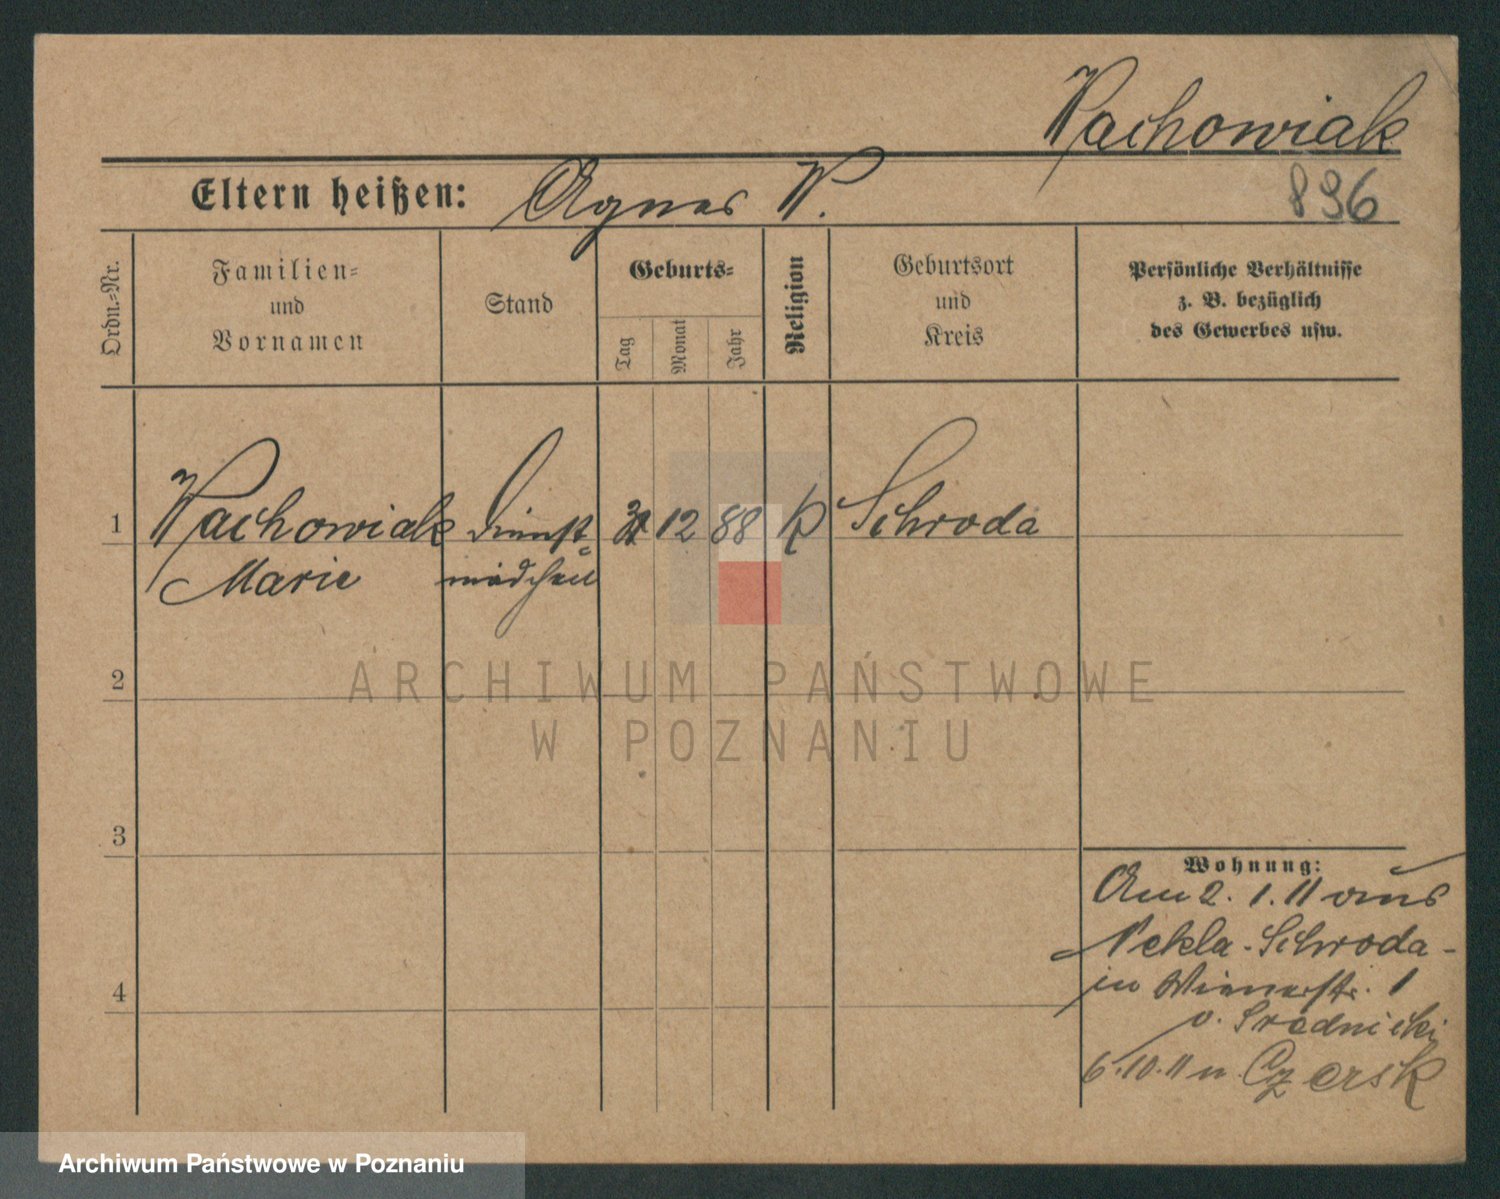 Wachowiak
Eltern heißen: Agnes W.
896
Ordn.-Nr.
Familien-
und
Vornamen
Stand
Geburts-
Tag
Monat
Jahr
Religion
Geburtsort
und
Kreis
Persönliche Verhältnisse
z. B. bezüglich
des Gewerbes usw.
1 Wachowiak Dienst- 12 88 K Schroda
Marie mädchen
ARCHIWUM PAŃSTWOWE
W POZNANIU
2
3
4
Wohnung:
Am 2. 1. 11 aus
Nekla-Schroda-
in Wienerstr. 1
v. Srednicki
6.10.11 n. Czersk
Archiwum Państwowe w Poznaniu